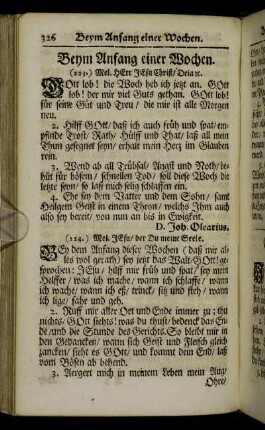 326 Beym Anfang einer Wochen.
Beym Anfang einer Wochen.
(223.) Mel. HErr JEsu Christ/ Dein ꝛc.
GOtt lob! die Woch heb ich jetzt an. GOtt
lob! der mir viel Guts gethan. GOtt lob!
für seine Güt und Treu/ die mir ist alle Morgen
neu.
2. Hilff GOtt/ daß ich auch früh und spat/ em-
pfinde Trost/ Rath/ Hülff und That/ laß all mein
Thun gesegnet seyn/ erhalt mein Herz im Glauben
rein.
3. Wend ab all Trübsal/ Angst und Noth/ be-
hüt für bösem/ schnellen Tod/ soll diese Woch die
letzte seyn/ so laß mich selig schlaffen ein.
4. Ehr sey dem Vatter und dem Sohn/ samt
Heilgem Geist in einem Thron/ welchs Ihm auch
also sey bereit/ von nun an bis in Ewigkeit.
D. Joh. Olearius.
(224.) Mel. JEsu/ der Du meine Seele.
BEy dem Anfang dieser Wochen (daß mir al-
les wol gerath) sey jetzt das Walt GOtt! ge-
sprochen: JEsu/ hilf mir früh und spat/ sey mein
Helffer/ was ich mache/ wann ich schlaffe/ wann
ich wache/ wann ich eß/ trinck/ sitz und steh/ wann
ich lige/ fahr und geh.
2. Ruff mir aller Ort und Ende immer zu: thu
nichts/ GOtt siehts! was du thust/ bedenck das En-
de und die Stunde des Gerichts. So bleibt mir in
den Gedancken/ wann sich Geist und Fleisch gleich
zancken/ sieht es GOtt/ und kommt dein End/ laß
vom Bösen ab behend.
3. Aergert mich in meinem Leben mein Aug/
Ohr/